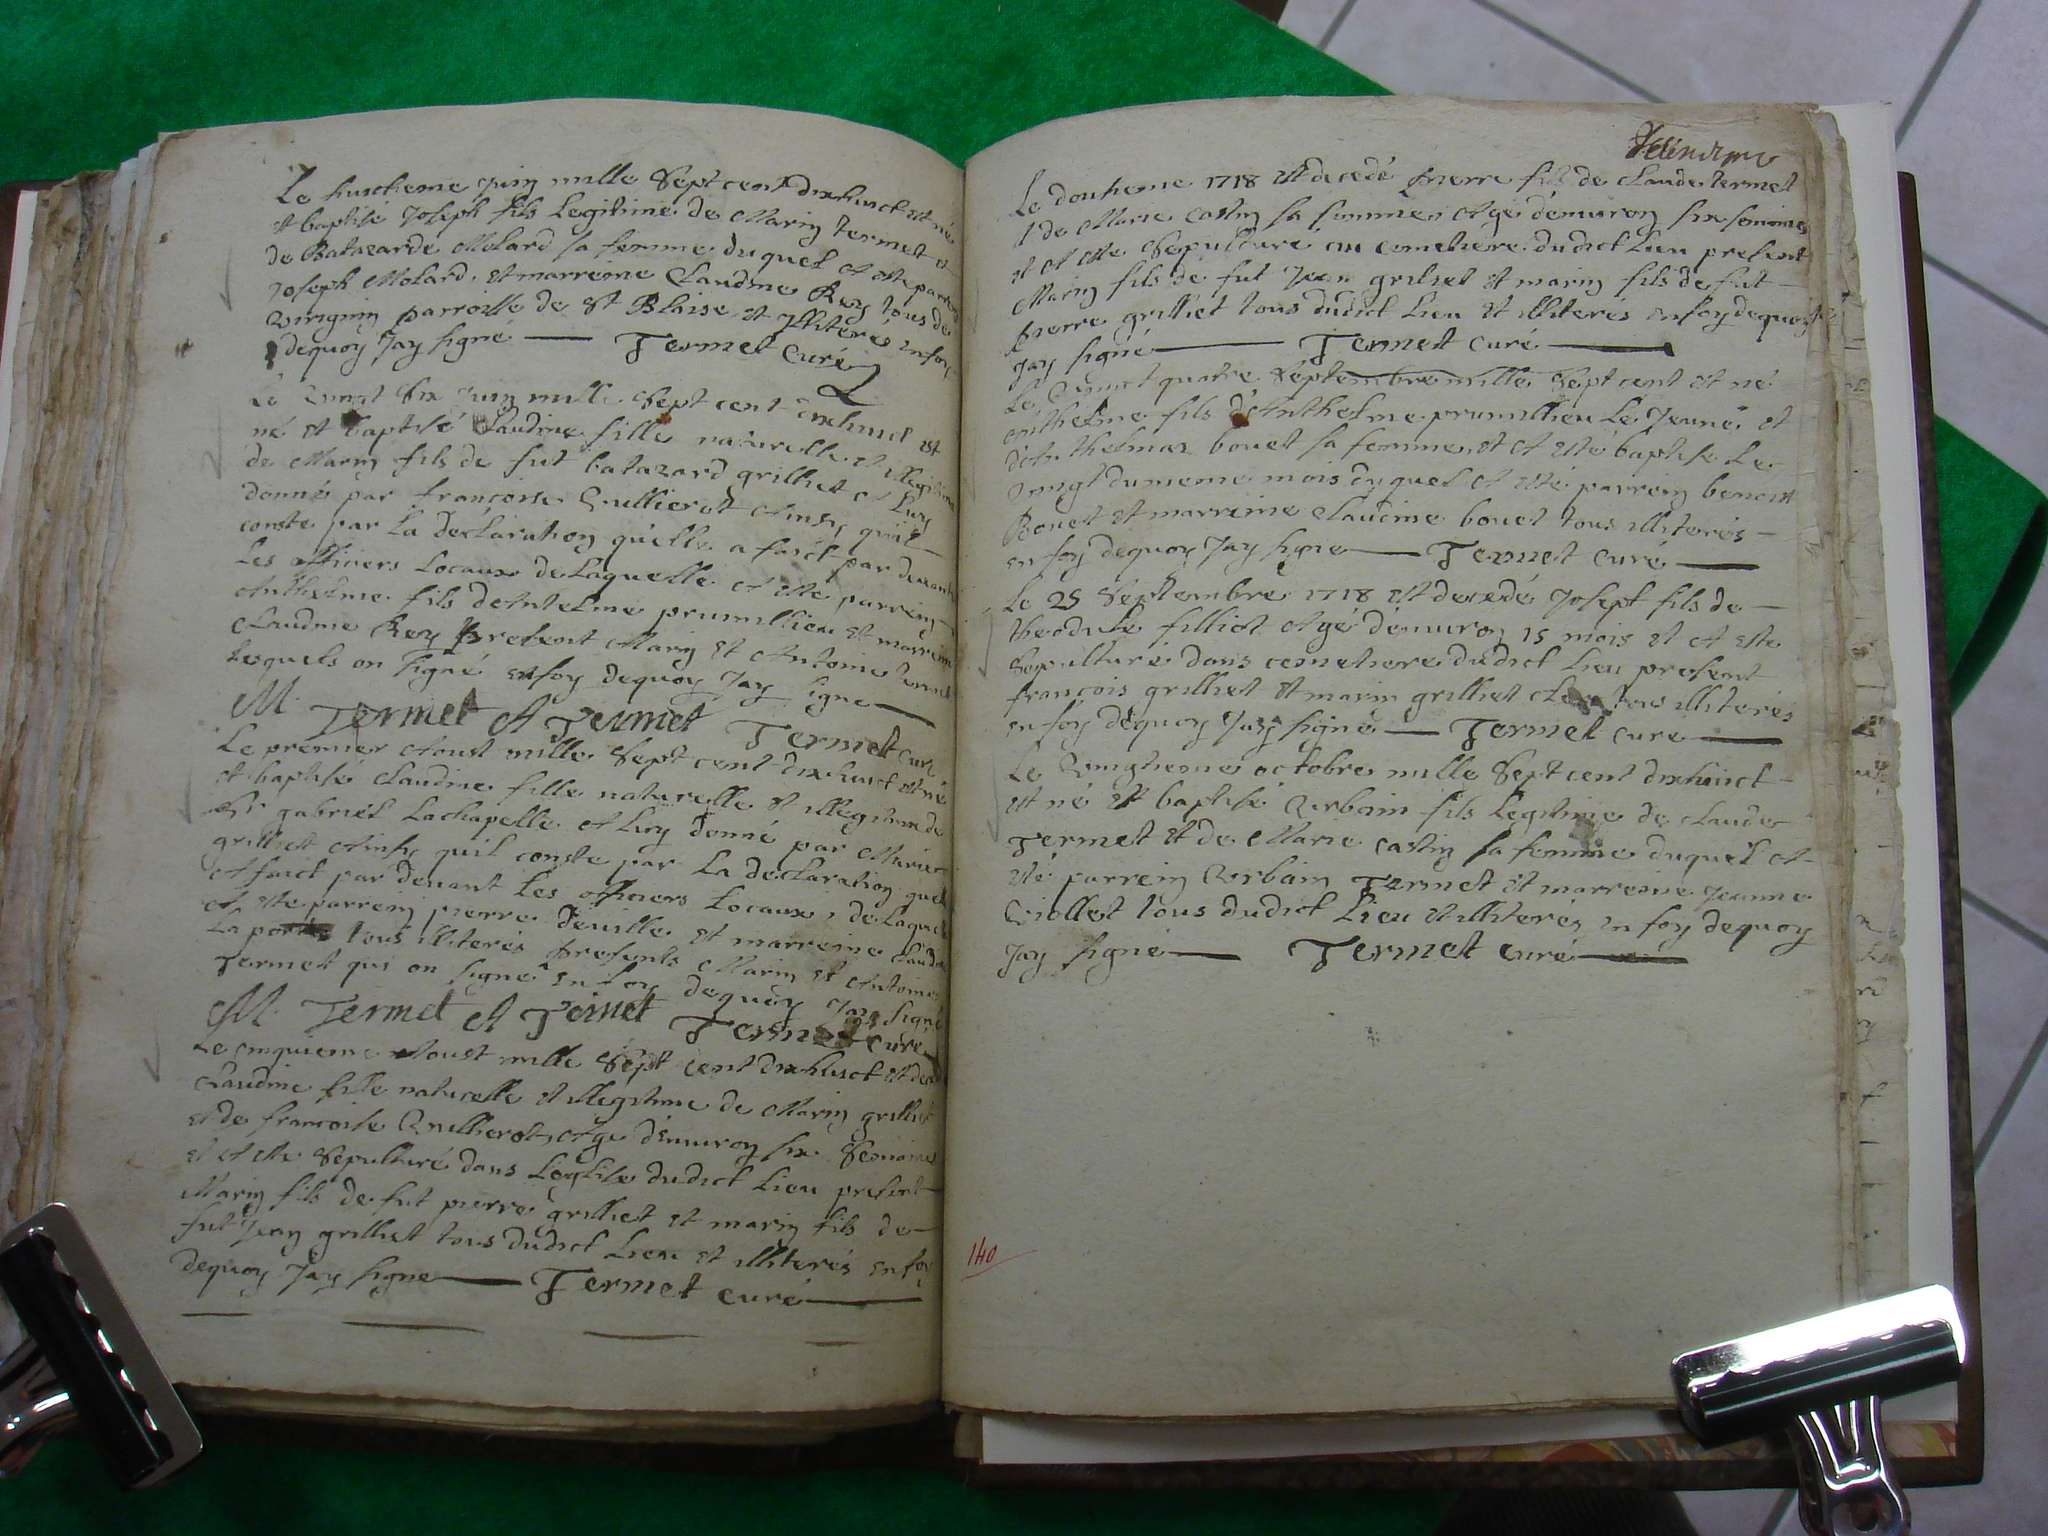 Le huictieme juin mille Sept cent dixhuict est né
et baptisé Joseph fils Legitime de Marin Termet et
de Batazarde Molard sa femme duquel at esté parrein
Joseph Molard et marreine Claudine Rey tous de
Virignin parroisse de St Blaise et Illiterés en foy
dequoy Jay signé Termet Curé
Le Vingt Six juin mille Sept cent dixhuict est
né et baptisé Claudine fille naturelle et illegitime
de Marin fils de fut batazard grilliet et luy
donné par françoise Vullierot Ainsy quil
conste par La declaration quelle a faict par devant
Les officiers Locaux de Laquelle at esté parrein
Anthelme fils de Antelme prumillieu et marreine
Claudine Rey present Marin et Antoine Termet
lesquels on signé en foy dequoy Jay signe
M Termet A Termet Termet curé
Le premier Aoust mille Sept cent dixhuict est né
et baptisé Claudine fille naturelle et illegitime de
Sr gabriel Lachapelle et luy donné par
grilliet Ainsy quil conste par La declaration quel
At faict par devant Les officiers Locaux de Laquelle
at esté parrein pierre Deville et marreine
La tous illiterés presents Marin et Antoine
Termet qui on signé En foy dequoy Jay signé
M. Termet A Termet Termet curé
Le cinquieme Aoust mille Sept cent dixhuict est decedé
Claudine fille naturelle et illegitime de Marin grilliet
et de françoise Vullierot Agé denviron six Semaines
et at esté Sepulturé dans Leglise dudict Lieu present
Marin fils de fut pierre grilliet et marin fils de
fut Jean grilliet tous dudict Lieu et illiterés en foy
dequoy Jay signe Termet curé
Le 1718 est decedé pierre fils de Claude Termet
et de Marie Castin sa femme Agé denviron six semaines
et at esté Sepulturé au cemetiere dudict Lieu present
Marin fils de fut Jean grilliet et marin fils de fut
pierre grilliet tous dudict Lieu et illiterés en foy dequoy
Jay signé Termet curé
Le Vingt quatre Septembre mille Sept cent est né
anthelme fils d'Anthelme prumillieu Le Jeune et
d'Anthelmaz bouet sa femme et at esté baptisé Le
Vingt du meme mois duquel at esté parrein benoist
Bouet et marreine Claudine bouet tous illiterés
en foy dequoy Jay signe Termet curé
Le 25 Septembre 1718 est decedé Josept fils de
theodule filliot Agé denviron 15 mois et at esté
Sepulturé dans cemetiere dudict Lieu present
françois grilliet et marin grilliet tous illiterés
en foy dequoy Jay signé Termet curé
Le Vingtieme octobre mille Sept cent dixhuict
est né et baptisé Vrbain fils Legitime de Claude
Termet et de Marie Castin sa femme duquel at
été parrein Vrbain Termet et marreine jeanne
Viollet tous dudict Lieu et illiterés en foy dequoy
Jay signé Termet curé
140